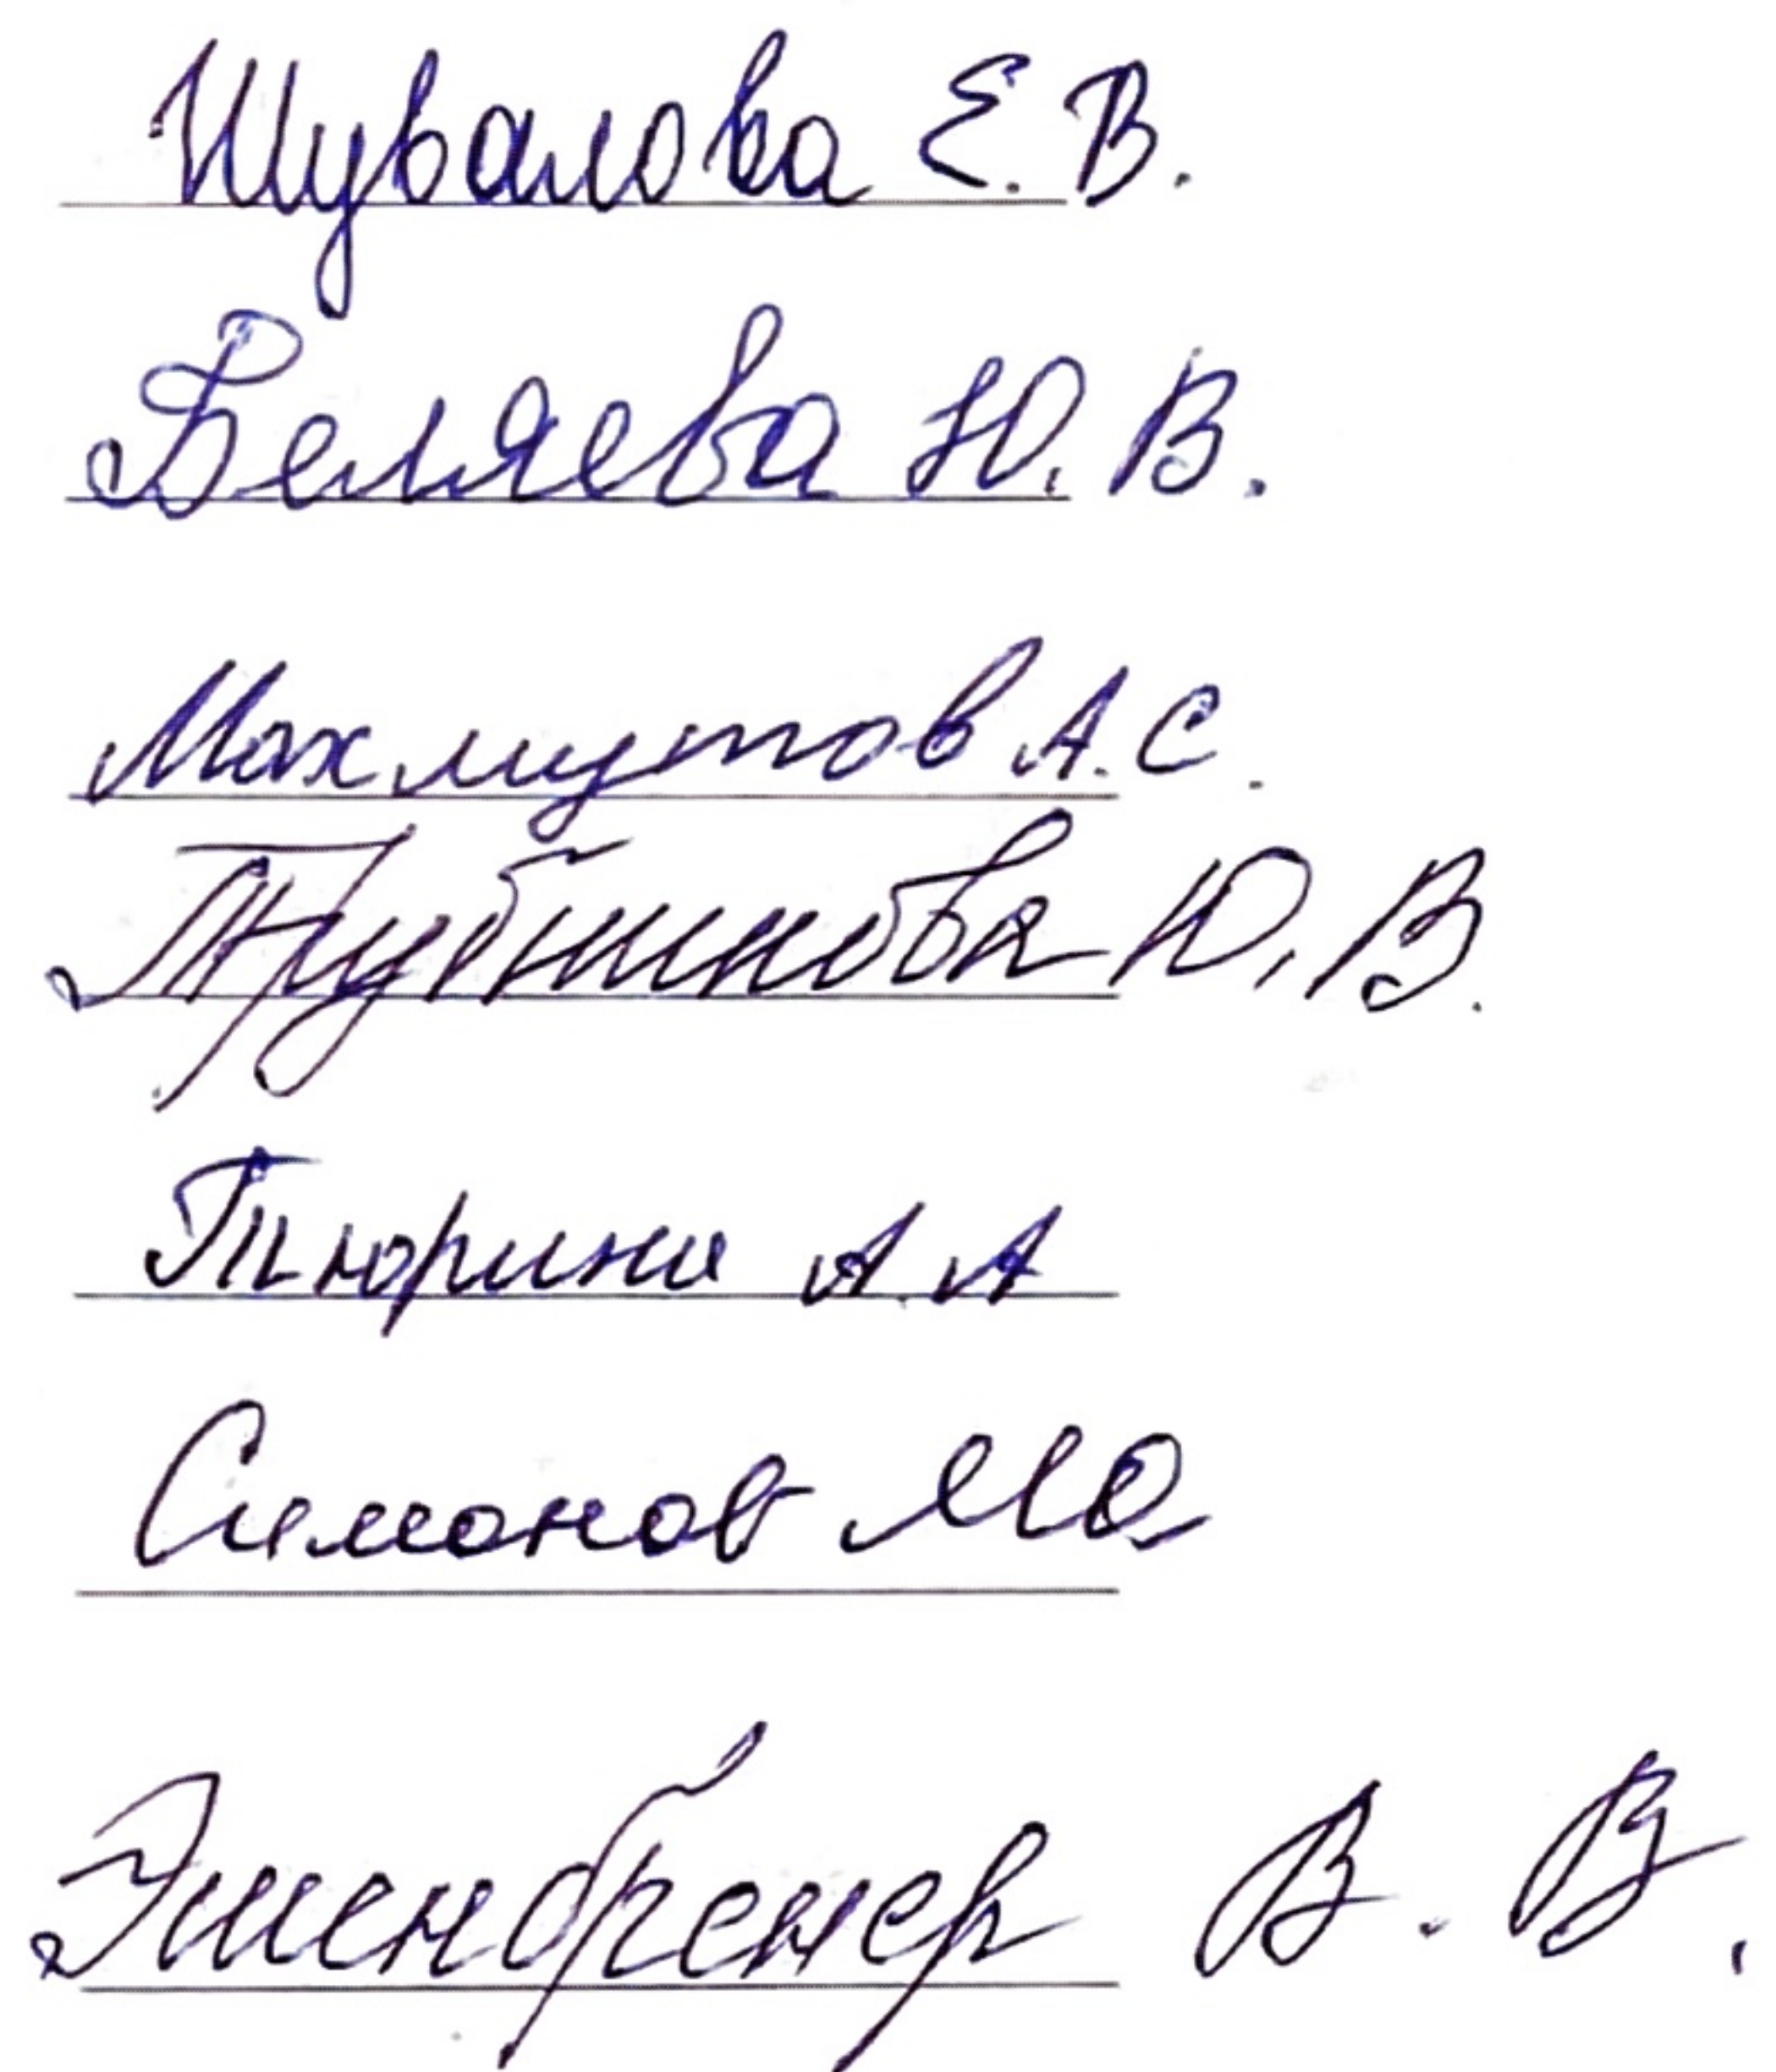 Шувалова Е.В.
Беляева Ю.В.
Махмутов А.С.
Трубникова Ю.В.
Тюрина А.А
Симонов МО
Эшенбренер В.В.